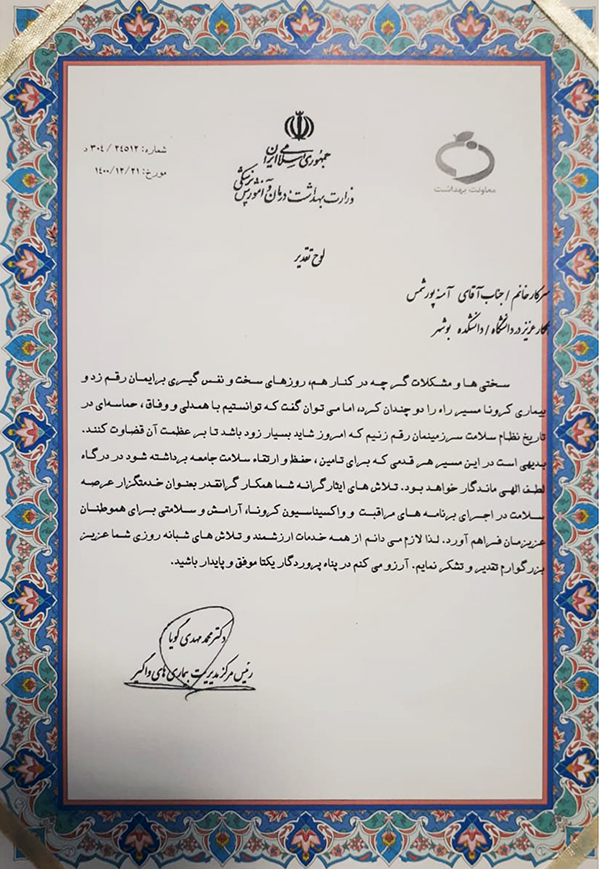 جمهوری اسلامی ایران
وزارت بهداشت، درمان و آموزش پزشکی
شماره: ۳۰۴/۲۴۵۱۲ د
مورخ: ۱۴۰۰/۱۲/۲۱
معاونت بهداشت
لوح تقدیر
سرکار خانم / جناب آقای آمنه پورشمس
همکار عزیز در دانشگاه / دانشکده بوشهر
سختی ها و مشکلات گر چه در کنار هم، روزهای سخت و نفس گیری برایمان رقم زد و
بیماری کرونا مسیر راه را دو چندان کرد، اما می توان گفت که توانستیم با همدلی و وفاق، حماسه‌ای در
تاریخ نظام سلامت سرزمینمان رقم زنیم که امروز شاید بسیار زود باشد تا بر عظمت آن قضاوت کنند.
بدیهی است در این مسیر هر قدمی که برای تامین، حفظ و ارتقاء سلامت جامعه برداشته شود در درگاه
لطف الهی ماندگار خواهد بود. تلاش های ایثارگرانه شما همکار گرانقدر بعنوان خدمتگزار عرصه
سلامت در اجرای برنامه های مراقبت و واکسیناسیون کرونا، آرامش و سلامتی برای هموطنان
عزیزمان فراهم آورد. لذا لازم می دانم از همه خدمات ارزشمند و تلاش های شبانه روزی شما عزیز
بزرگوارم تقدیر و تشکر نمایم. آرزو می کنم در پناه پروردگار یکتا موفق و پایدار باشید.
دکتر محمد مهدی گویا
رئیس مرکز مدیریت بیماری های واگیر